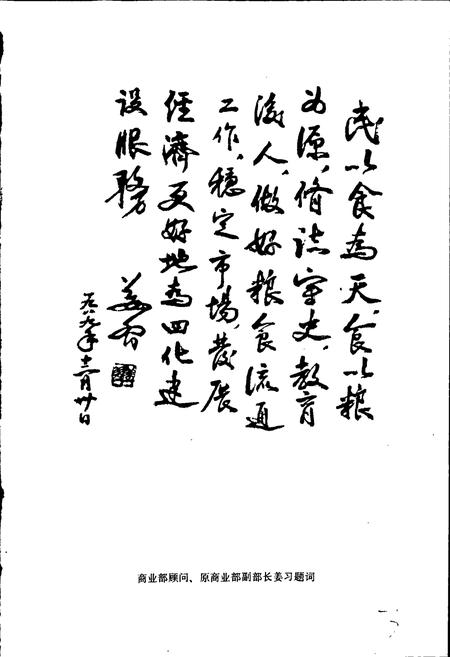 民以食為天,食以粮
为源,脩誌史,教育
後人,做好粮食流通
工作,穩定市場,發展
经濟更好地為四化建
设服務
姜习
一九八九年十二月卅日
商业部顾问、原商业部副部长姜习题词